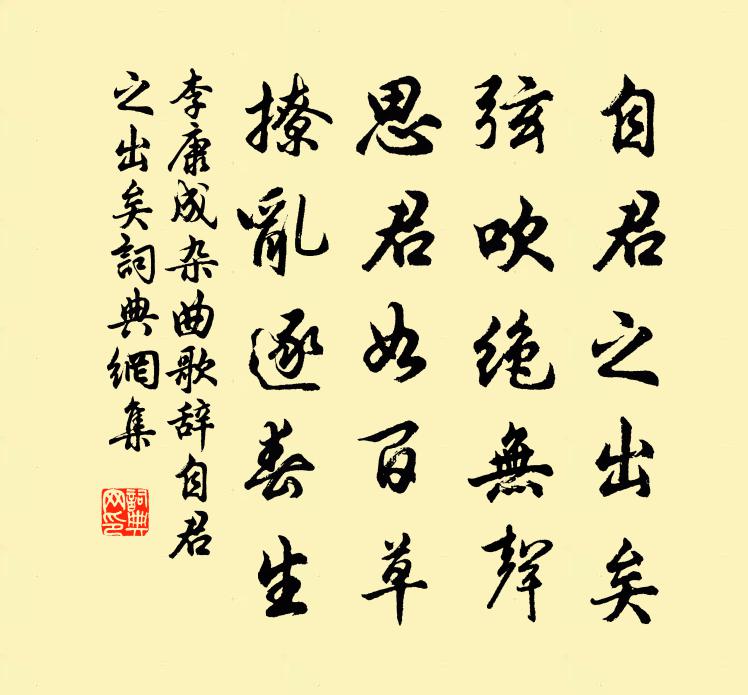 自君之出矣
弦吹绝無聲
思君如百草
撩亂逐春生
李康成杂曲歌辞自君
之出矣詞典網集
詞典
网印